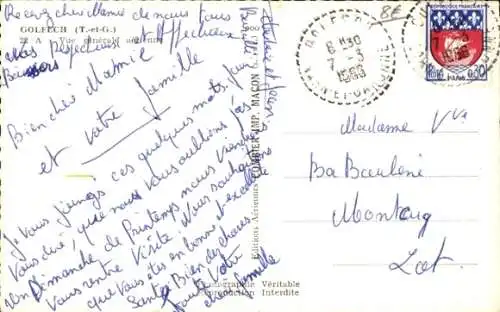 Recevez chère Mamie de nous tous
GOLFECH (T.-et-G.)
nos respectueux et affectueux
22 A - Vue générale aérienne
Baisers
Bien chère Mamie
et votre famille
Je vous joings ces quelques mots, pour
Vous dire, que nous vous oublions pas
Un Dimanche de Printemps nous viendrons
Vous rendre visite. Nous souhaitons
que vous êtes en bonne et excellente
Santé. Bien des choses
toute votre
chère famille
Editions Aériennes COMBIER IMP. MACON
Photographie Véritable
Reproduction Interdite
GOLFECH
8H30
7 - 3
TARN-ET-GARONNE
REPUBLIQUE FRANCAISE
PARIS
0,30
Madame Vve
Montcuq
Lot.